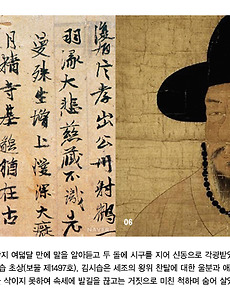 出公州射
大悲慈藏不識先
曼殊生增上慢深大
月精寺基
NAVER
06
지 여덟달 만에 말을 알아듣고 두 돌에 시구를 지어 신동으로 각광받
습 초상(보물 제1497호), 김시습은 세조의 왕위 찬탈에 대한 울분과 애
삭이지 못하여 속세에 발길을 끊고는 거짓으로 미친 척하며 숨어 살